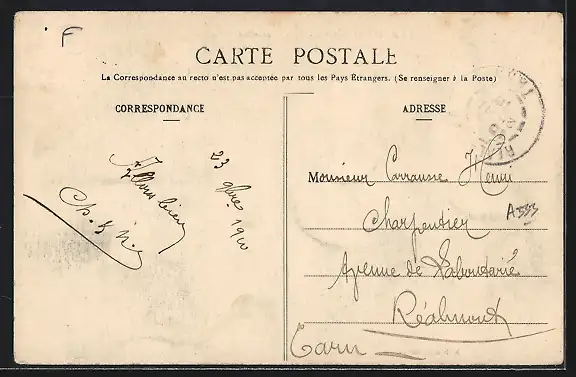 F
CARTE POSTALE
La Correspondance au recto n'est pas acceptée par tous les Pays Étrangers. (Se renseigner à la Poste)
CORRESPONDANCE
23 9bre 1910
ADRESSE
Monsieur Carrausse Henri
Charpentier
Avenue de
Réalmont
Tarn
A533